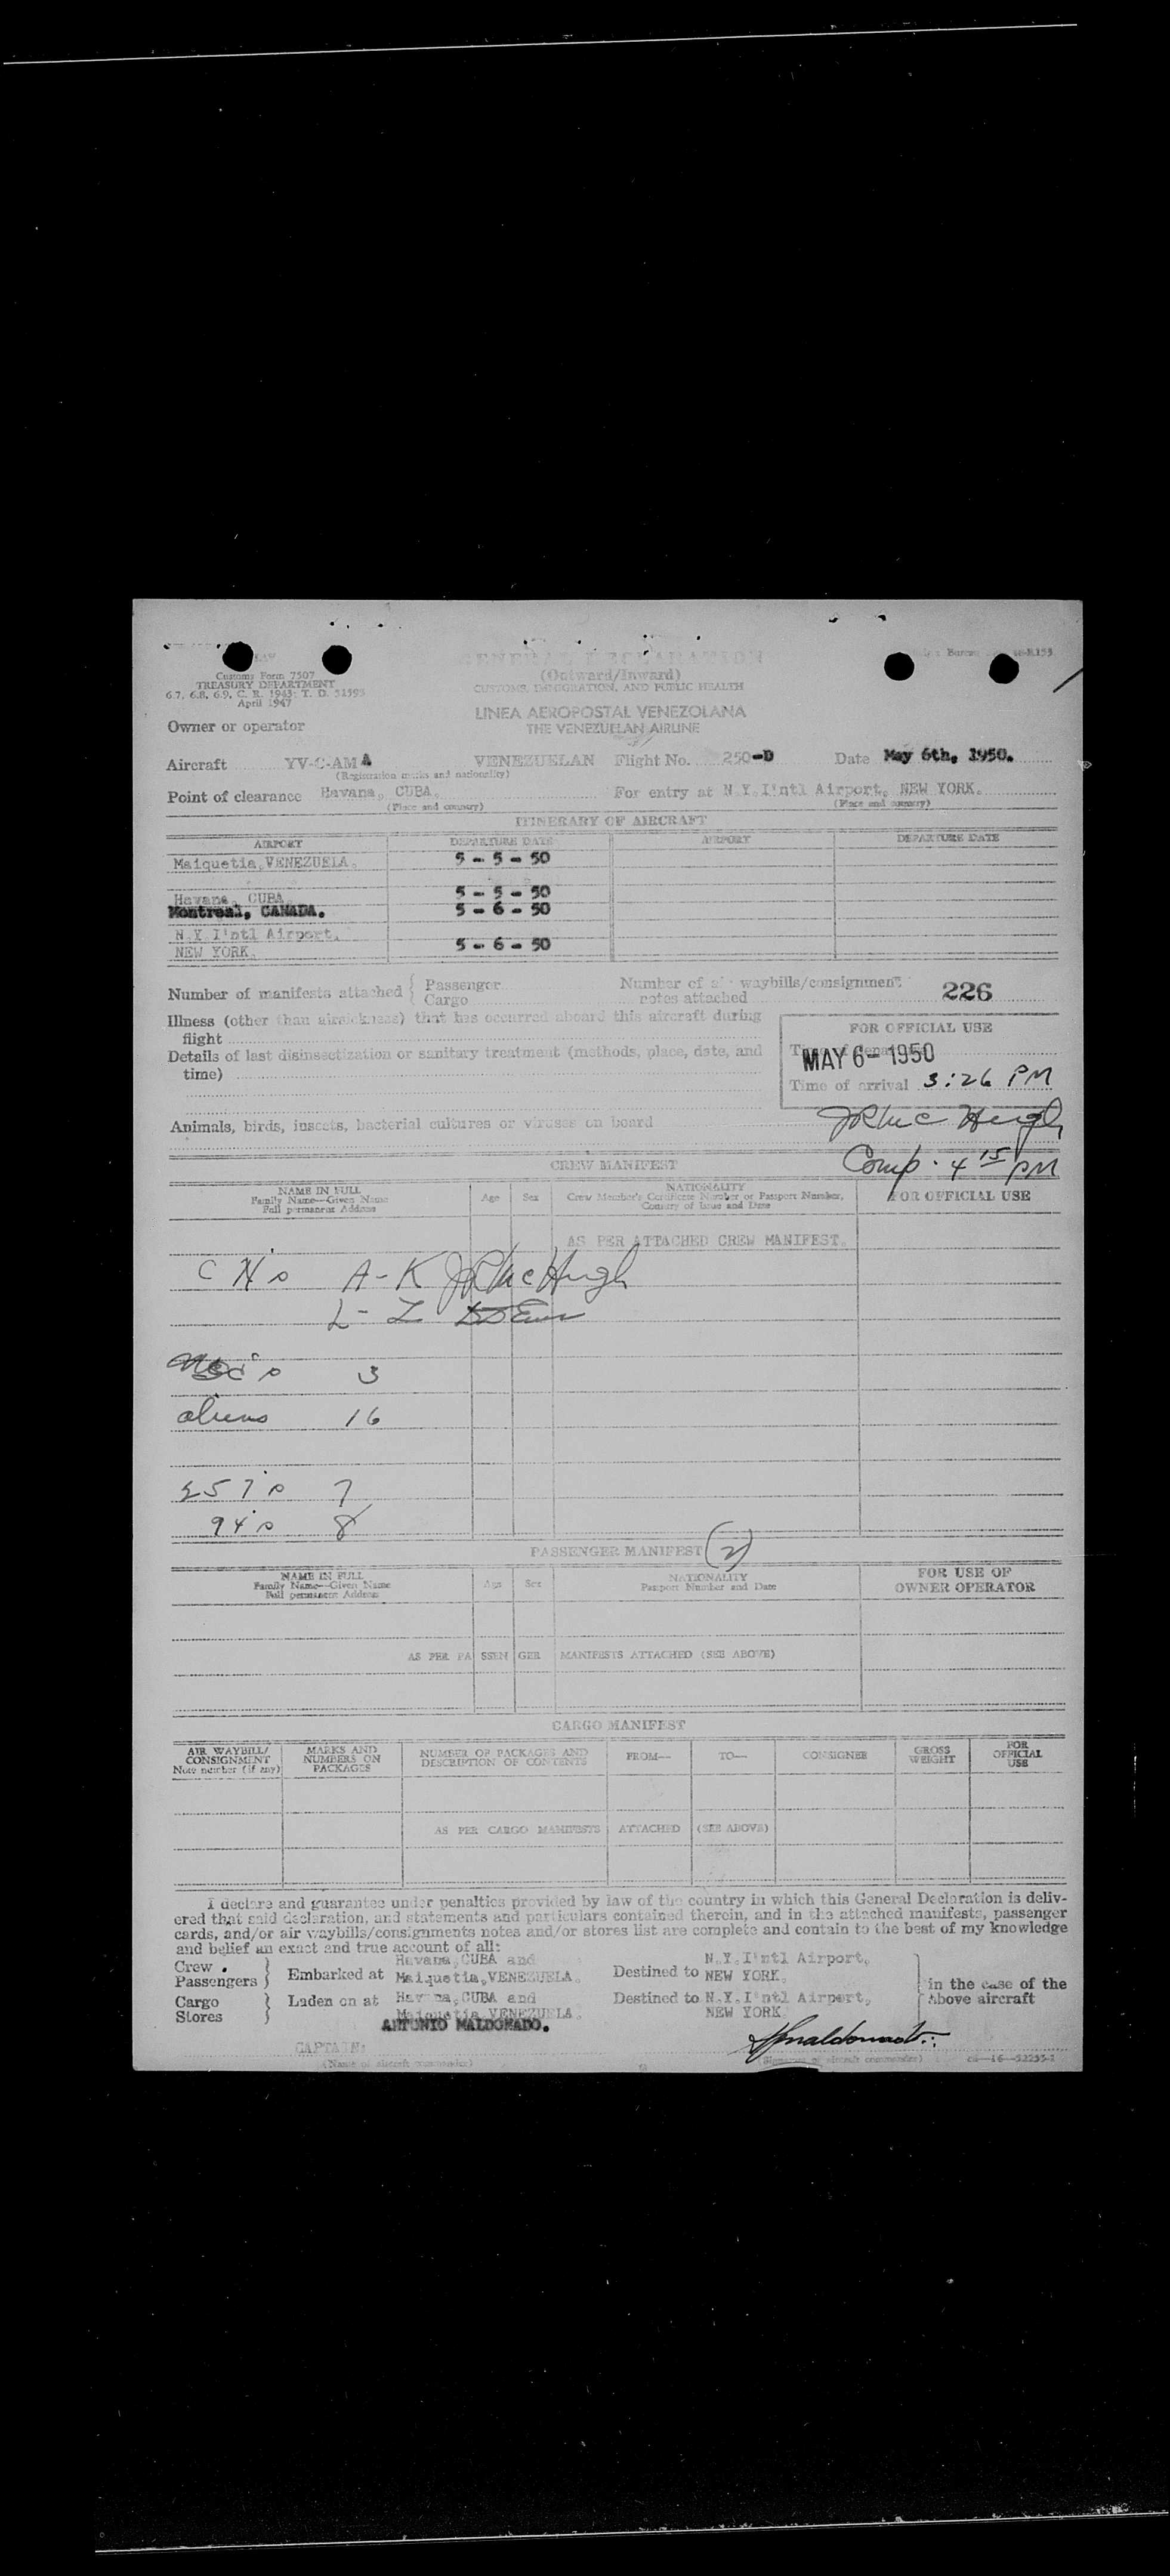 Customs Form 7507
TREASURY DEPARTMENT
6.7, 6.8, 6.9, C. R. 1943: T. D. 51595
April 1947
GENERAL DECLARATION
(Outward/Inward)
CUSTOMS, IMMIGRATION, AND PUBLIC HEALTH
LINEA AEROPOSTAL VENEZOLANA
THE VENEZUELAN AIRLINE
Owner or operator
Aircraft YV-C-AMA VENEZUELAN Flight No. 250-D Date May 6th, 1950.
(Registration marks and nationality)
Point of clearance Havana, CUBA. For entry at N.Y.I'ntl Airport, NEW YORK.
(Place and country) (Place and country)
ITINERARY OF AIRCRAFT
AIRPORT DEPARTURE DATE AIRPORT DEPARTURE DATE
Maiquetia,VENEZUELA. 5 - 5 - 50
Havana, CUBA 5 - 5 - 50
Montreal, CANADA. 5 - 6 - 50
N.Y.I'ntl Airport,
NEW YORK. 5 - 6 - 50
Number of manifests attached { Passenger
Cargo
Number of air waybills/consignment
notes attached
226
Illness (other than airsickness) that has occurred aboard this aircraft during
flight
Details of last disinsectization or sanitary treatment (methods, place, date, and
time)
FOR OFFICIAL USE
MAY 6- 1950
Time of arrival 3:26 PM
Animals, birds, insects, bacterial cultures or viruses on board
Comp. 4 15 PM
CREW MANIFEST
NAME IN FULL
Family Name—Given Name
Full permanent Address
Age Sex
NATIONALITY
Crew Member's Certificate Number or Passport Number,
Country of Issue and Date
FOR OFFICIAL USE
AS PER ATTACHED CREW MANIFEST.
A-K JR McHugh
L-Z
3
aliens 16
257's 7
94's 8
PASSENGER MANIFEST (2)
NAME IN FULL
Family Name—Given Name
Full permanent Address
Age Sex
NATIONALITY
Passport Number and Date
FOR USE OF
OWNER OPERATOR
AS PER PASSENGER MANIFESTS ATTACHED (SEE ABOVE)
CARGO MANIFEST
AIR WAYBILL/
CONSIGNMENT
Note number (if any)
MARKS AND
NUMBERS ON
PACKAGES
NUMBER OF PACKAGES AND
DESCRIPTION OF CONTENTS
FROM— TO— CONSIGNEE
GROSS
WEIGHT
FOR
OFFICIAL
USE
AS PER CARGO MANIFESTS ATTACHED (SEE ABOVE)
I declare and guarantee under penalties provided by law of the country in which this General Declaration is deliv-
ered that said declaration, and statements and particulars contained therein, and in the attached manifests, passenger
cards, and/or air waybills/consignments notes and/or stores list are complete and contain to the best of my knowledge
and belief an exact and true account of all:
Crew
Passengers } Embarked at Havana,CUBA and
Maiquetia,VENEZUELA.
Destined to N.Y.I'ntl Airport,
NEW YORK.
Cargo
Stores } Laden on at Havana,CUBA and
Maiquetia,VENEZUELA.
Destined to N.Y.I'ntl Airport,
NEW YORK
in the case of the
above aircraft
ANTONIO MALDONADO.
CAPTAIN:
(Name of aircraft commander) (Signature of aircraft commander)